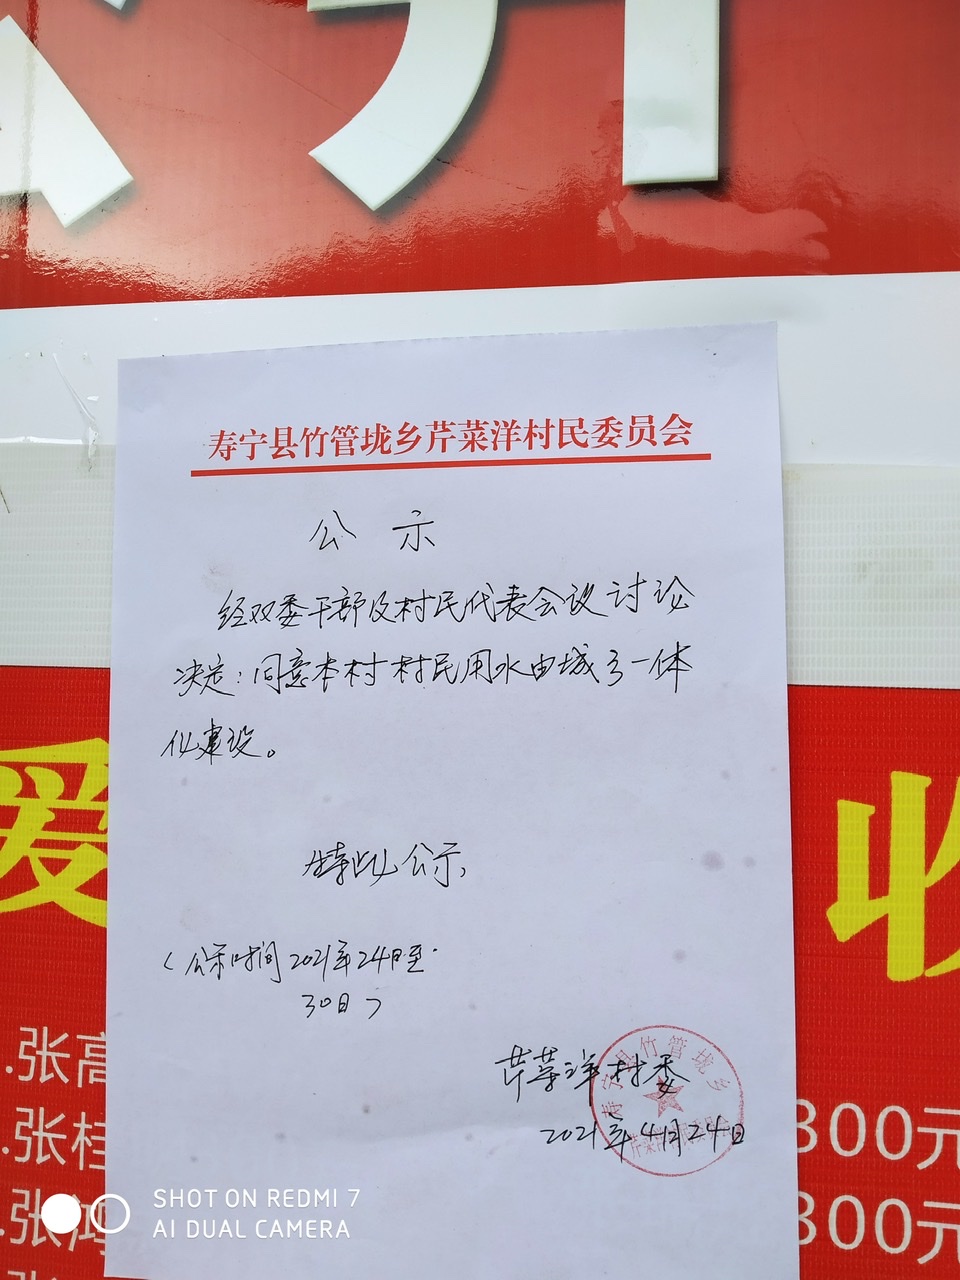 寿宁县竹管垅乡芹菜洋村民委员会
公 示
经双委干部及村民代表会议讨论
决定：同意本村村民用水由城乡一体
化建设。
特此公示
（公示时间2021年24日至
30日）
芹菜洋村委
2021年4月24日
寿宁县竹管垅乡
爱
收
.张高
.张桂
300元
.张鸿
300元
SHOT ON REDMI 7
AI DUAL CAMERA